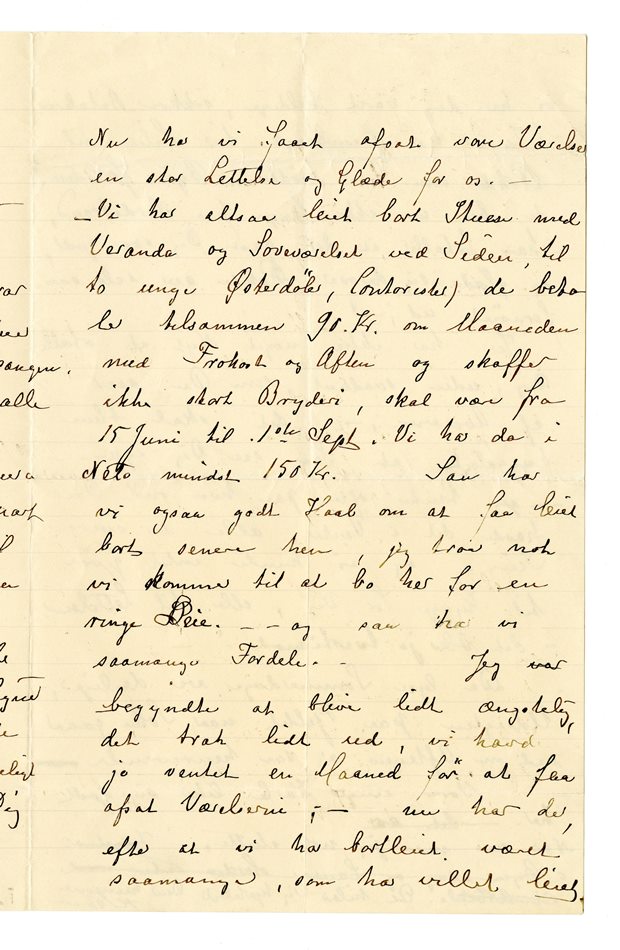 Nu har vi faaet afsat vore Værelser
en stor Lettelse og Glæde for os. –
– Vi har altsaa leiet bort Stuen med
Veranda og Soveværelset ved Siden, til
to unge Østerdøler, Contorister) de beta
le tilsammen 90. Kr. om Maaneden
med Frokost og Aften og skaffer
ikke stort Bryderi, skal være fra
15 Juni til 1ste Sept. Vi har da i
Neto mindst 150 Kr. Saa har
vi ogsaa godt Haab om at faa leiet
bort senere hen, jeg troer nok
vi kommer til at bo her for en
ringe Leie. – – og saa har vi
saamange Fordele. – Jeg var
begyndte at blive lidt ængstelig,
det trak lidt ud, vi havd
jo ventet en Maaned før at faa
afsat Værelserne, – nu har der,
efter at vi har bortleiet, været
saamange, som har villet leiet.
alle